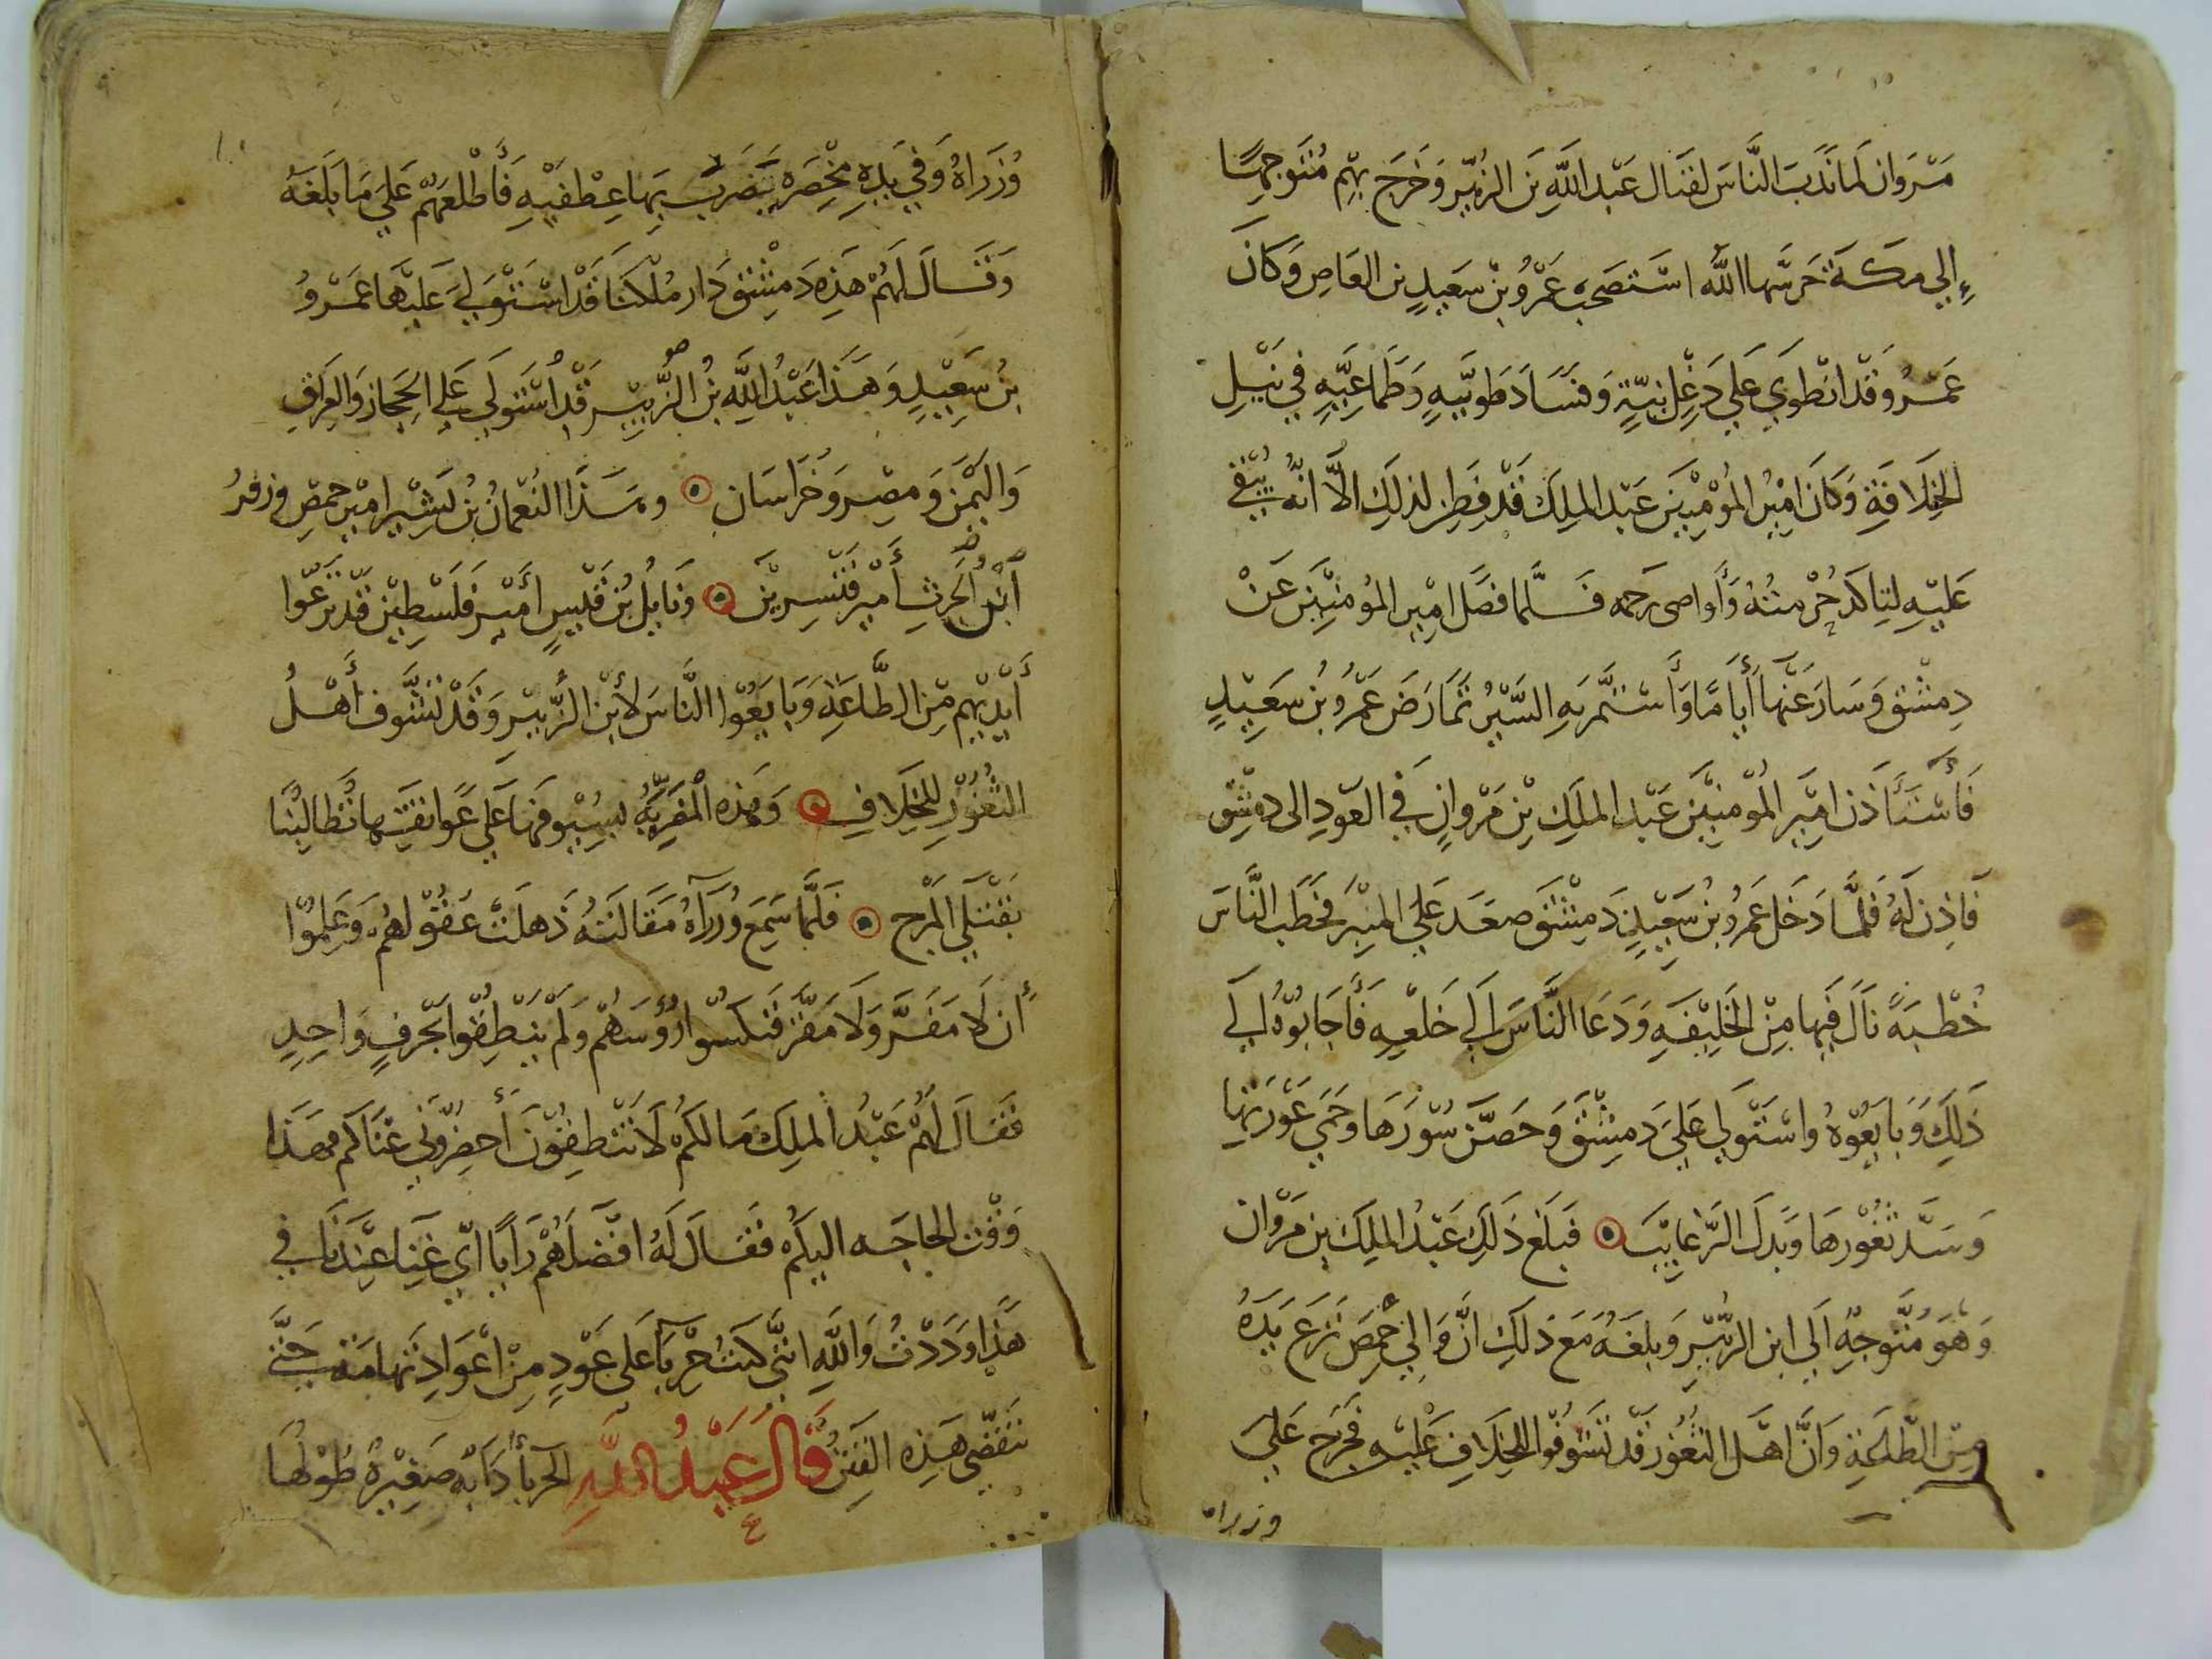 مَرَوان لما نَدَبَ النَّاسَ لقتال عَبْد اللَّهِ بن الزبَير وَخَرَجَ بهِم مُتَوجهًا
إلي مكة حَرسَها الله استَصَحبَ عَمْرُو بنْ سَعَيدٍ بن العَاصِ وَكَانَ
عَمْرُو قَدْ انْطوَي عَلَي دَغِل نيّةٍ وَفَسَادَ طَويَّهٍ وَطَمَاعِيَّهٍ في نَيْلِ
الخِلَافَةِ وَكَانَ امِيْرُ المُؤمِنيَن عَبْد الملِكَ قَدْ فَطِن لذلِكَ الاَّ انَّهُ يُبْقي
عَلَيْهِ لتِاكَد حُرْمتُهُ وَأواصي رَحمه فلَّما فصَل امِيْر المُومنِيْنَ عَنْ
دِمشْقِ وَسَارَ عَنْهَا أيَامًا وَأستَمَّر بَهِ السَّيْرُ تمَارَضَ عَمْرُو بُن سَعَيِيْدٍ
فَأسْتَأذَن امِيَر المُوْمنيَّنَ عَبْد الملَكِ بْنِ مَرْوانٍ في العَودِ الى دمشِق
فَاذِن لَهُ فَلمَّا دَخَل عَمرُو بْن سَعَيْدٍ دَمِشْقَ صعَدَ عَلَي المنِبْرَ فخَطَب النَّاسَ
خُطْبَةً نَالَ فيَها مِنْ الخَلِيْفَهِ وَدَعَا النَّاسَ إلي خَلعْهِ فَأجَابُوْهُ الَي
ذَلِكَ وَبَايعُوْهُ واسْتَولي عَلَي دَمِشْقَ وَحَصَّنَ سُوْرَهَا وَحَمَي عَوْرَتهِا
وَسَدَّ ثغُوْرهَا وَبذَلَ الرَّغايِبَ ۞ فَبلَغ ذَلِكَ عَبْدُ الملِكَ بن مَرْوان
وَهُوَ مُتَوجِهٍ الَي ابن الزبَيْرِ وَبلغَهُ مَعَ ذلكَ انَّ وَالِي حْمِصَ نزَعَ يَدَهُ
مِنْ الطَّاعَةِ وَانَّ اهْل الثغُوُر قَدْ تَشَوفُوا للخِلَافِ عَليْهِ فَخَرجَ عَلَي
وزراه
وُزَرَاهُ وَفي يَدِهِ مِخْصَرَهٍ يَضرَبُ بِهَا عِطْفَيْهِ فَأطْلعَهُم عَلَي مَا بَلَغَهُ
وَقَالَ لَهُمْ هَذِهِ دَمِشْقِ دَار مُلكَنَا قَدْ اسْتَوْلَيِ عَلَيْهَا عَمْروُ
بنُ سَعَيِيْدٍ وَهَذَا عَبْدُ اللَّهِ بُن الزَّبَيْر قَدْ أسْتَولَي عَلي الحَجِاز وَالعِرَاقِ
وَاليَمَن وَمِصْر وَخُرَاسَان ۞ وهَذَا النُعْمَانُ بُن بَشْير امِيْر حمصِ وزفرُ
ابْن الحَرثِ أميْر قنَسِريْن ۞ وَنايلُ بن قَيْسٍ أمْيَر فَلَسْطِيْن قَدْ نَزعُوا
أيْديْهِم مِنْ الطَّاعَةِ وَبَايَعُوا النَّاسَ لأبْن الزُّبَيْرِ وَقَدْ تَشَّوف أهْلُ
الثغُوْرِ للخِلَافِ ۞ وَهَذهِ المُضَرِيَّهُ بسُيْبوفهَا عَلي عَواتقِهَا تُطَالِبُنَا
بقَتْلَي المَرْج ۞ فَلَمَّا سَمِعَ وُزَرآهُ مَقَالَتَهُ ذَهلَت عُقُوْلهُم وَعَلِمُوْا
أن لَا مَفَرَّ وَلَا مَقَرّ فَنكسُوْا رُؤسَهُم وَلَم يَنْطِقُوْا بحَرفٍ وَاحِدٍ
فَقَالَ لَهُمْ عَبْدُ الملِك مَالكُم لَا تَنْطِقُوْنَ أحِضرُونْي غَنَاكُم فهَذَا
وَقْتُ الحاجَه اليكُم فَقَالَ لَهُ افضَلهُمْ رَايًا ايّ غِنَا عِنْدنَا في
هَذَا وَدَدْتُ وَاللَّهِ اننَّي كنتُ حِرْبَآ عَلي عَوْدٍ مِنْ اعْوَادِ تهَامَة حَتَّي
تَنقَضّي هَذِهِ الفِتَنُ قَال عَبْدُ اللَّهِ الحرَبأُ دَابَّهُ صَغِيْرهُ طُوْلُهَا